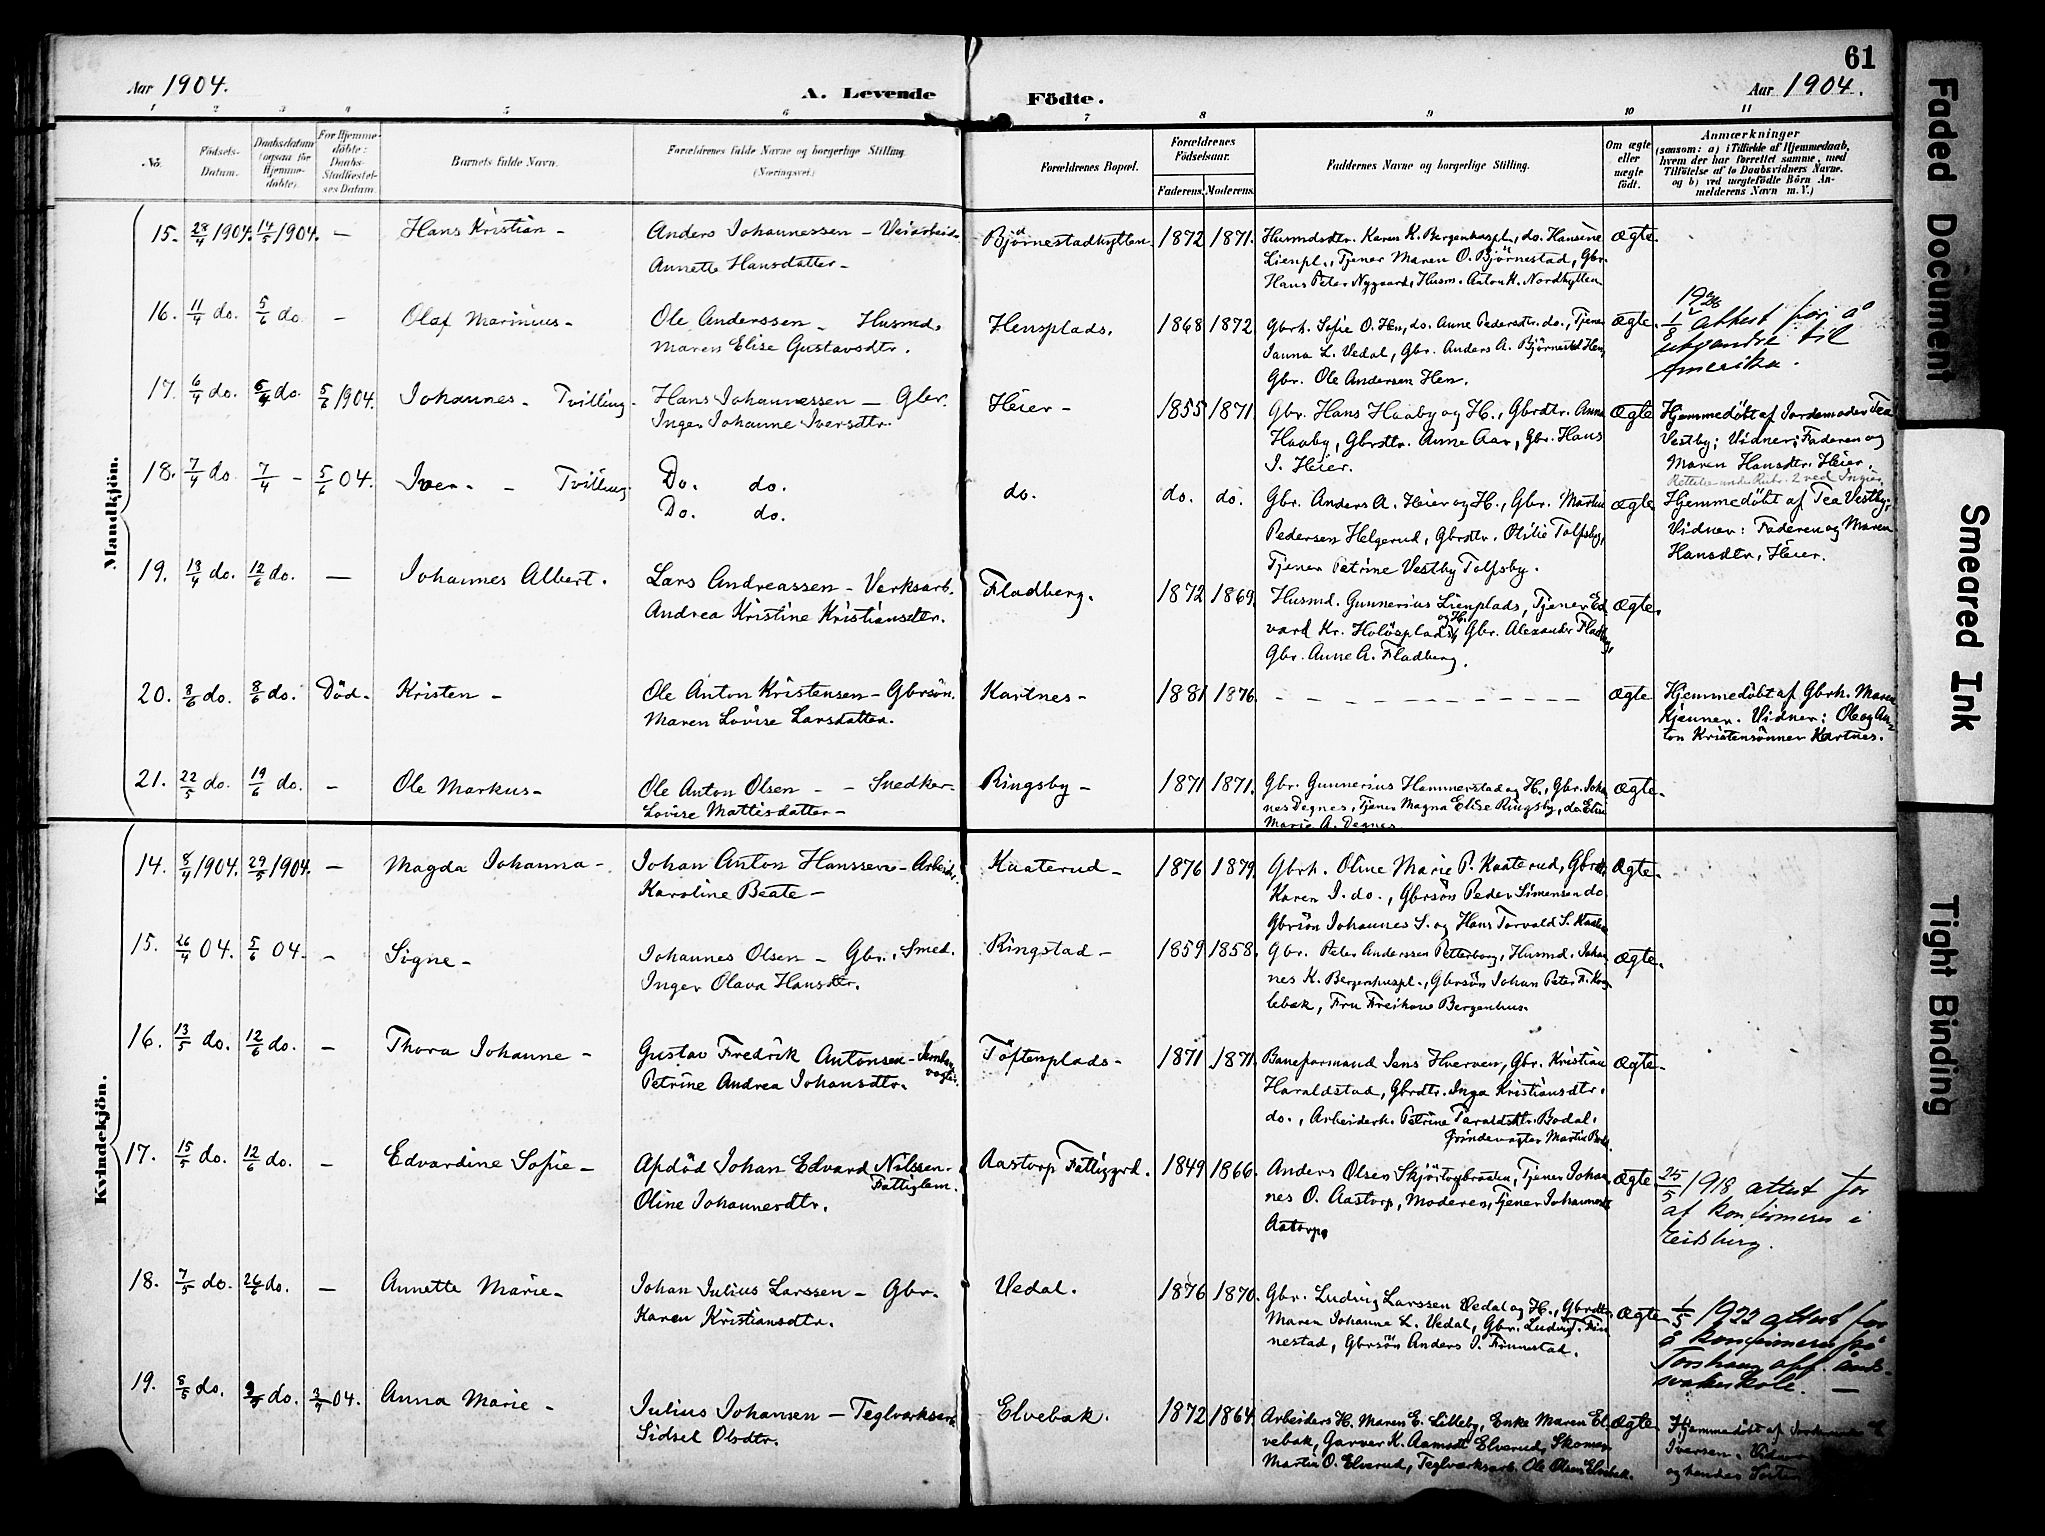 61
Aar 1904.
A. Levende Födte.
Aar 1904.
1 2 3 4 5 6 7 8 9 10 11
No.
Födsels-Datum.
Daabsdatum (ogsaa for Hjemme-döbte).
For Hjemme-döbte: Daabs-Stadfæstel-ses Datum.
Barnets fulde Navn.
Forældrenes fulde Navne og borgerlige Stilling.
(Næringsvei.)
Forældrenes Bopæl.
Forældrenes Födselsaar.
Faderens. Moderens.
Faddernes Navne og borgerlige Stilling.
Om ægte eller uægte födt.
Anmærkninger
(saasom: a) i Tilfælde af Hjemmedaab,
hvem der har forrettet samme, med
Tilföielse af to Daabsvidners Navne.
og b) ved uægtefödte Börn An-
melderens Navn m. V.)
Mandkjön.
15. 28/4 1904. 14/5 1904. — Hans Kristian – Anders Johannessen – Veiarbeid. Bjørnestadhytten. 1872 1871. Husmdsdtr. Karen K. Bergenhuspl., do. Hansine Ægte.
Annette Hansdatter – Lienpl., Tjener Maren O. Björnestad, Gbr.
Hans Peter Nygaard, Husm. Anton H. Nordhytten
16. 11/4 do. 5/6 do. – Olaf Marinius – Ole Anderssen – Husmd. Hensplads. 1868 1872. Gbrh. Sofie O. Hen, do. Anne Pedersdtr. do., Tjener Ægte. 1/8 1928 attest for å
Maren Elise Gustavsdtr. Janna L. Vedal, Gbr. Anders A. Björnestad Hen, utvandre til
Gbr. Ole Andersen Hen. Amerika.
17. 6/4 do. 6/4 do. 5/6 1904. Johannes – Tvilling – Hans Johannessen – Gbr. Heier – 1855 1871. Gbr. Hans Haaby og H., Gbrdtr. Anna Ægte Hjemmedöbt af Jordemoder Tea
Inger Johanne Iversdtr. Haaby, Gbrdtr. Anne Aar, Gbr. Hans Vestby; Vidner; Faderen og
J. Heier. Maren Hansdtr. Heier.
18. 7/4 do. 7/4 – 5/6 04. Iver – – Tvilling. Do. do. do. do. do. Gbr. Anders A. Heier og H., Gbr. Martin Ægte Hjemmedöbt af Tea Vestby.
Do. do. Pedersen Helgerud, Gbrdtr. Otilie Tolfsby, Vidner: Faderen og Maren
Tjener Petrine Vestby Tolfsby. Hansdtr. Heier.
19. 13/4 do. 12/6 do. — Johannes Albert. Lars Andreassen – Verksarb. Fladberg. 1872 1869. Husmd. Gunnerius Lienplads, Tjener Ed- Ægte.
Andrea Kristine Kristiansdtr. vard Kr. Holösplads og H., Gbr. Alexander Fladberg,
Gbr. Anne A. Fladberg.
20. 8/6 do. 8/6 do. Död – Kristen – Ole Anton Kristensen – Gbrsön. Kartnes – 1881 1876. – – – – – – – – – Ægte Hjemmedöbt af Gbrh. Maren
Maren Lovise Larsdatter. Kjenner. Vidner: Ole og An-
ton Kristensönner Kartnes.
21. 22/5 do. 19/6 do. – Ole Markus – Ole Anton Olsen – – Snedker – Ringsby – 1871 1871. Gbr. Gunnerius Hammerstad og H., Gbr. Johan- Ægte.
Lovise Mattisdatter – nes Degnes, Tjener Magna Elise Ringsby, do Elise
Marie A. Degnes.
Kvindekjön.
14. 8/4 1904. 29/5 1904. – Magda Johanna – Johan Anton Hanssen – Arbeid. Kaaterud – 1876 1879. Gbrh. Oline Marie P. Kaaterud, Gbrdtr. Ægte.
Karoline Beate – Karen J. do., Gbrsön Peder Simensen do
Gbrsön Johannes S. og Hans Torvald S. Kaater
15. 26/4 04. 5/6 04. – Signe – Johannes Olsen – Gbr., Smed. Ringstad – 1859 1858. Gbr. Peter Anderssen Petterborg, Husmd. Johan- Ægte.
Inger Olava Hansdtr. nes K. Bergenhuspl., Gbrsön Johan Peter F. Kor-
lebak, Fru Freihow Bergenhus.
16. 13/5 do. 12/6 do. – Thora Johanne – Gustav Fredrik Antonsen – Jernban- Töftenplads – 1871 1871. Baneformand Jens Hverven, Gbr. Kristian Ægte.
vogter. Petrine Andrea Johansdtr. Haraldstad, Gbrdtr. Inga Kristiansdtr.
do., Arbeiderh. Petrine Taraldsdtr. Bodal.
Grindevogter Martin
17. 15/5 do. 12/6 do. – Edvardine Sofie – Afdöd Johan Edvard Nilssen – Aastorp Fattiggrd. 1849 1866. Anders Olsen Skjörtorpbraaten, Tjener Johan- Ægte 25/5 1918 attest for
Fattiglem. Oline Johannesdtr. nes O. Aastorp, Moderen, Tjener Johannes af konfirmeres i
Aastorp. Eidsberg.
18. 7/5 do. 26/6 do. – Annette Marie – Johan Julius Larssen – Gbr. Vedal. 1876 1870. Gbr. Ludvig Larssen Vedal og H., Gbrdtr. Ægte 1/5 1922 attest for
Karen Kristiansdtr. Maren Johanne L. Vedal, Gbr. Ludvig Fin- å konfirmeres på
nestad, Gbrsön Anders J. Finnestad. Torshaug off. ånd-
svakeskole. —
19. 8/5 do. do. 3/7 04. Anna Marie – Julius Johansen – Teglverksarb. Elvebak. 1872 1864. Arbeiders H. Maren E. Lilleby, Enke Maren El- Ægte. Hjemmedöbt af
Sidsel Olsdtr. vebak, Garver K. Aamodt Elverud, Skomager Iversen. Vidner
Martin O. Elverud, Teglverksarb. Ole Olsen Elvebak. og hendes
Faded Document
Smeared Ink
Tight Binding